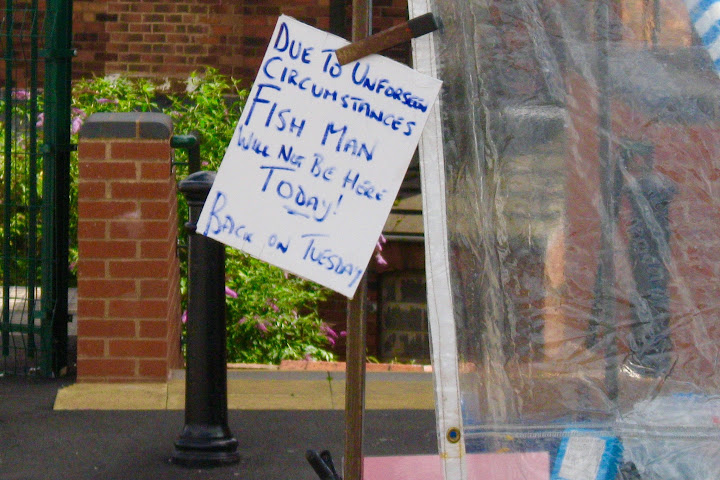 DUE TO UNFORSEEN
CIRCUMSTANCES
FISH MAN
WILL NOT BE HERE
TODAY!
BACK ON TUESDAY